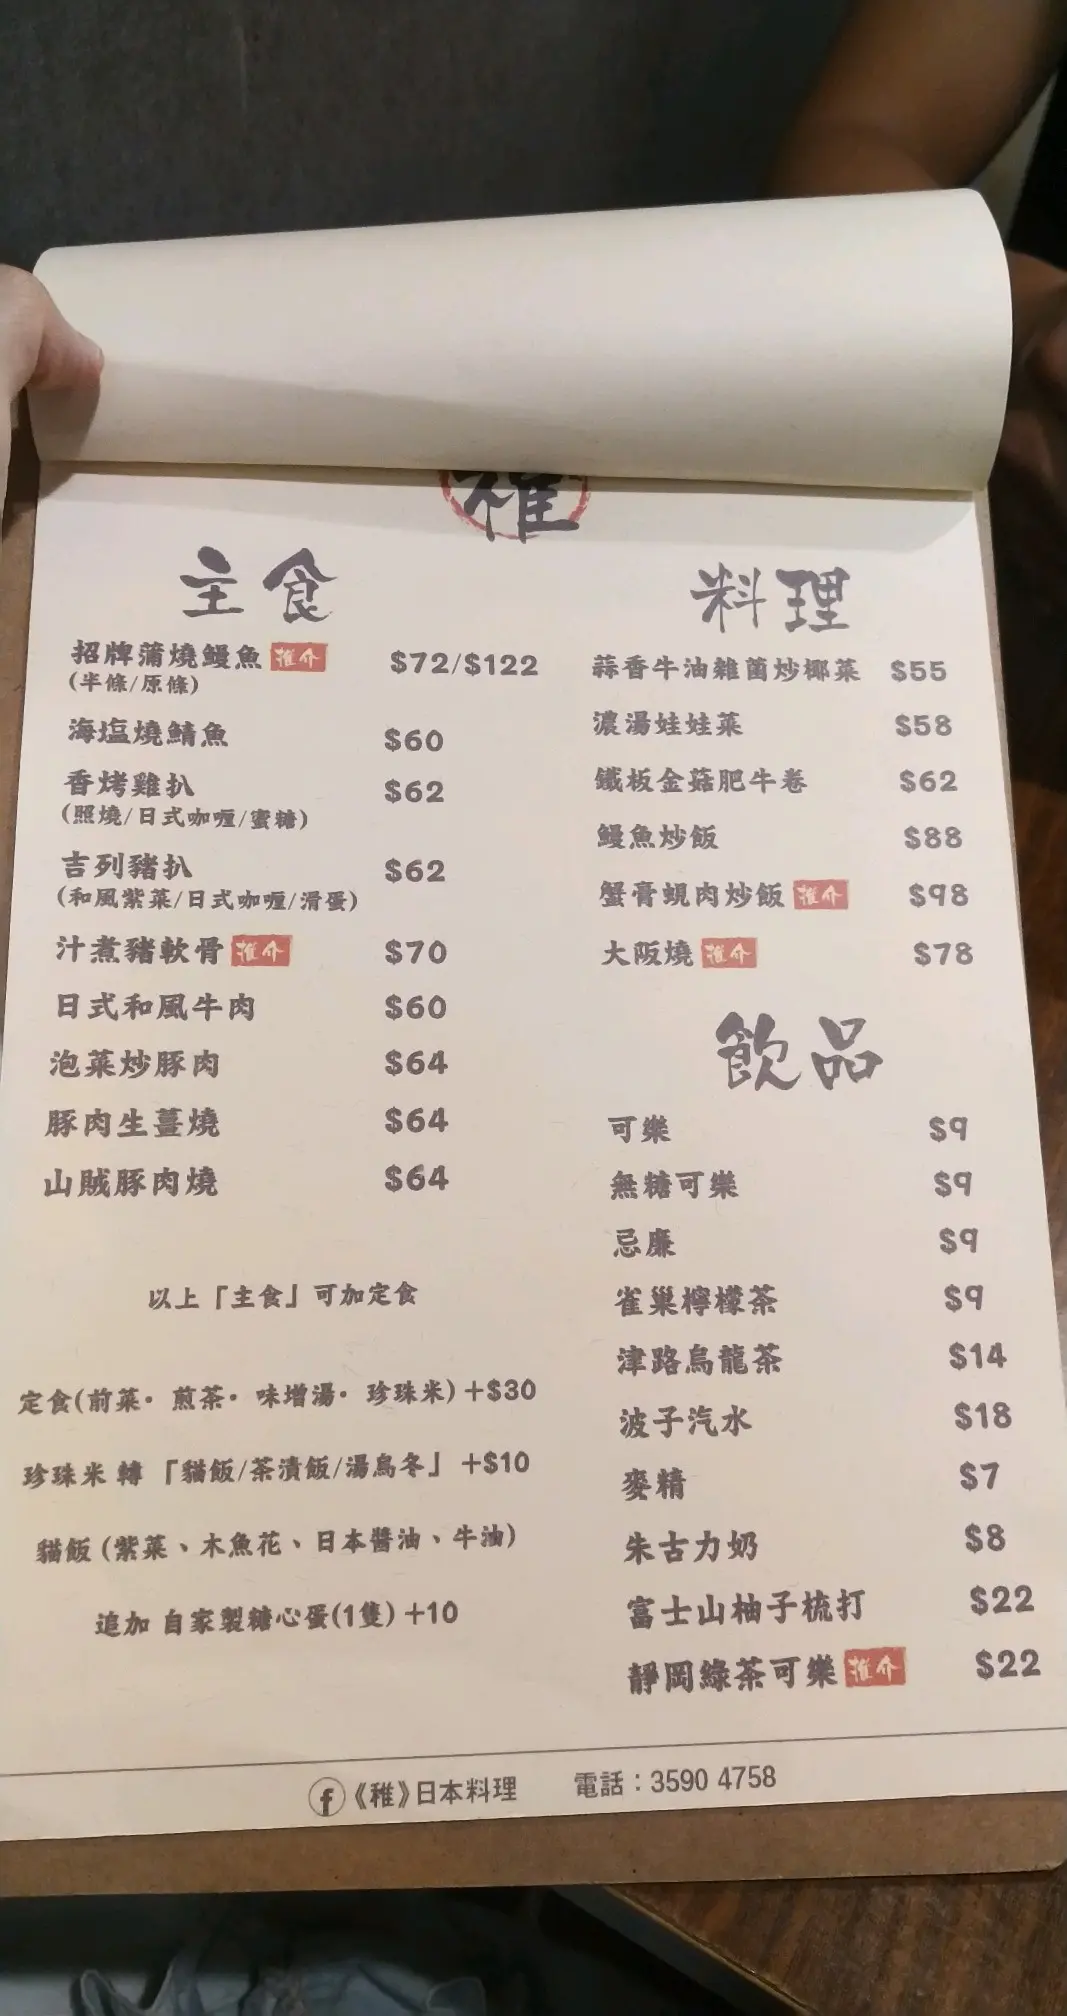 稚
主食
招牌蒲燒鰻魚 推介 $72/$122
(半條/原條)
海塩燒鯖魚 $60
香烤雞扒 $62
(照燒/日式咖喱/蜜糖)
吉列豬扒 $62
(和風紫菜/日式咖喱/滑蛋)
汁煮豬軟骨 推介 $70
日式和風牛肉 $60
泡菜炒豚肉 $64
豚肉生薑燒 $64
山賊豚肉燒 $64
以上「主食」可加定食
定食(前菜·煎茶·味增湯·珍珠米)+$30
珍珠米 轉「貓飯/茶漬飯/湯烏冬」+$10
貓飯(紫菜、木魚花、日本醬油、牛油)
追加 自家製糖心蛋(1隻)+10
料理
蒜香牛油雜菌炒椰菜 $55
濃湯娃娃菜 $58
鐵板金菇肥牛卷 $62
鰻魚炒飯 $88
蟹膏蜆肉炒飯 推介 $98
大阪燒 推介 $78
飲品
可樂 $9
無糖可樂 $9
忌廉 $9
雀巢檸檬茶 $9
津路烏龍茶 $14
波子汽水 $18
麥精 $7
朱古力奶 $8
富士山柚子梳打 $22
靜岡綠茶可樂 推介 $22
f《稚》日本料理 電話：3590 4758